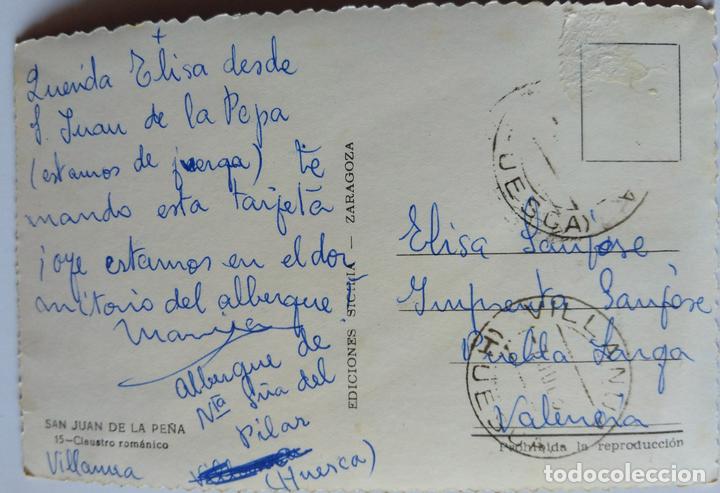 +
Querida Elisa desde
S. Juan de la Pepa
(estamos de juerga) te
mando esta tarjeta
¡oye estamos en el dor
mitorio del albergue
Albergue de
Nta Sña del
Pilar
(Huesca)
SAN JUAN DE LA PEÑA
15-Claustro románico
Villanua
EDICIONES SICILIA — ZARAGOZA
UESCA)
A
Elisa Sanjose
Imprenta Sanjose
Puebla Larga
Valencia
VILLANU
HUESCA
Prohibida la reproducción
todocoleccion
todocoleccion.net